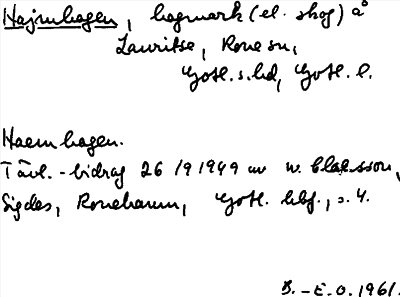 Hajmhagen, hagmark (el. skog) å
Lauritse, Rone sn,
Gotl. s. hd, Gotl. l.
Haemhagen.
Tävl.-bidrag 26/9 1949 av W. Claesson,
Sigdes, Ronehamn, Gotl. hbf., s. 4.
B.-E.O. 1961.